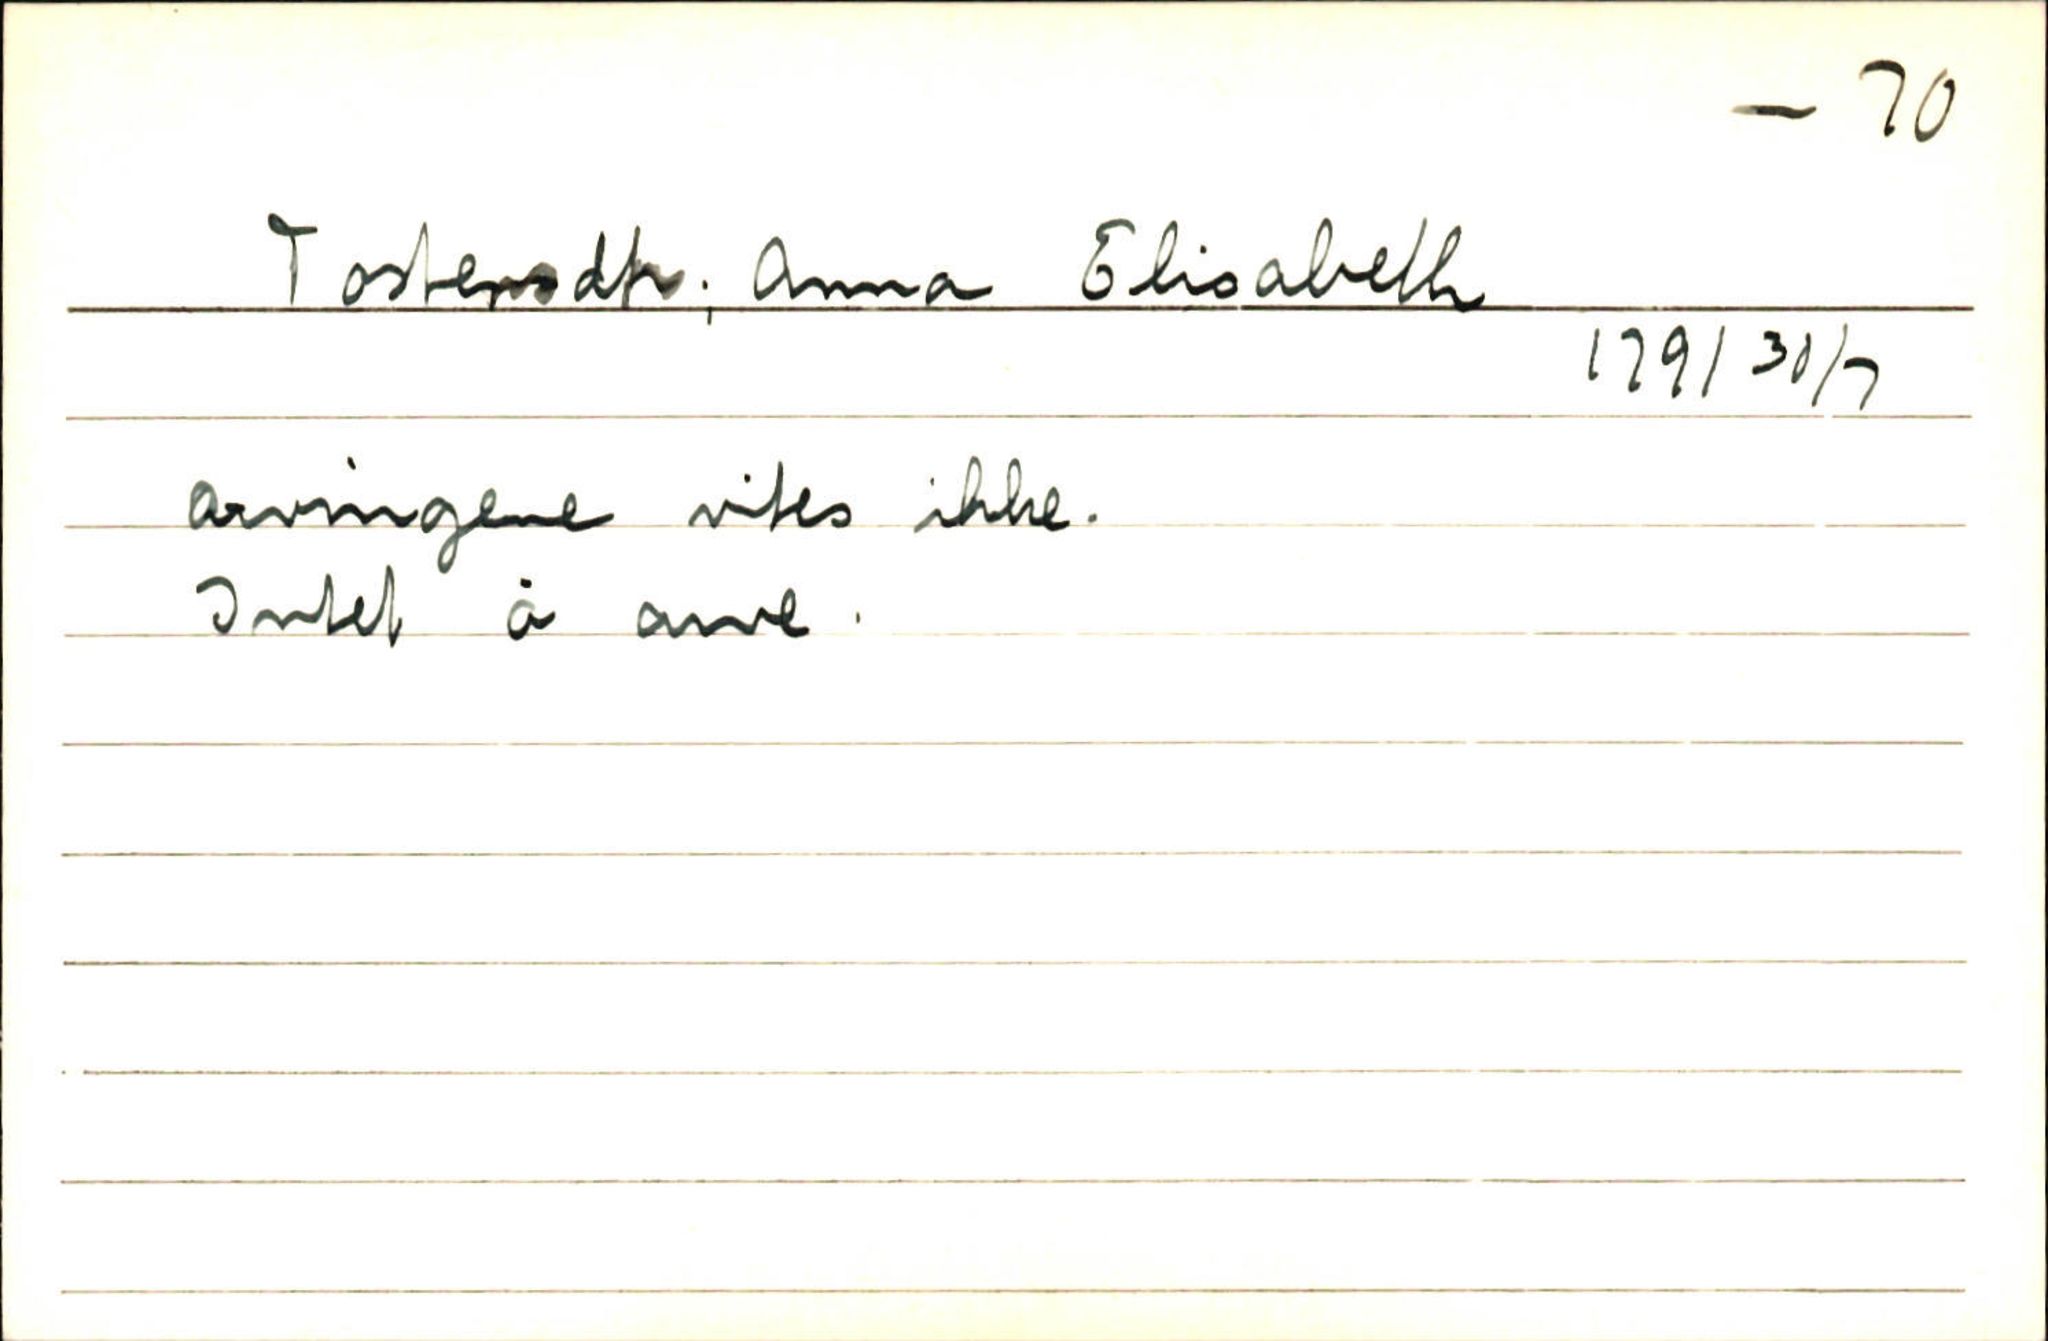 — 70
Tostensdtr., Anna Elisabeth
1791 31/7
Arvingene vites ikke.
Intet å arve.